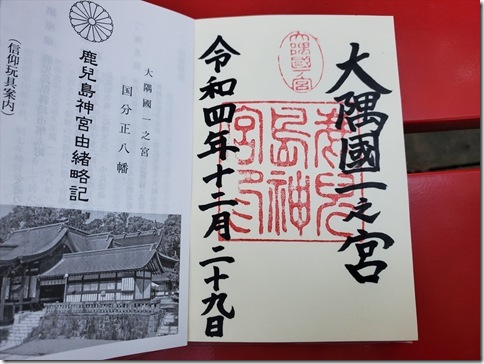 大隅國一之宮
大隅國一ノ宮
鹿兒島神宮印
令和四年十二月二十九日
大隅國一之宮
国分正八幡
鹿兒島神宮由緒略記
(信仰玩具案内)